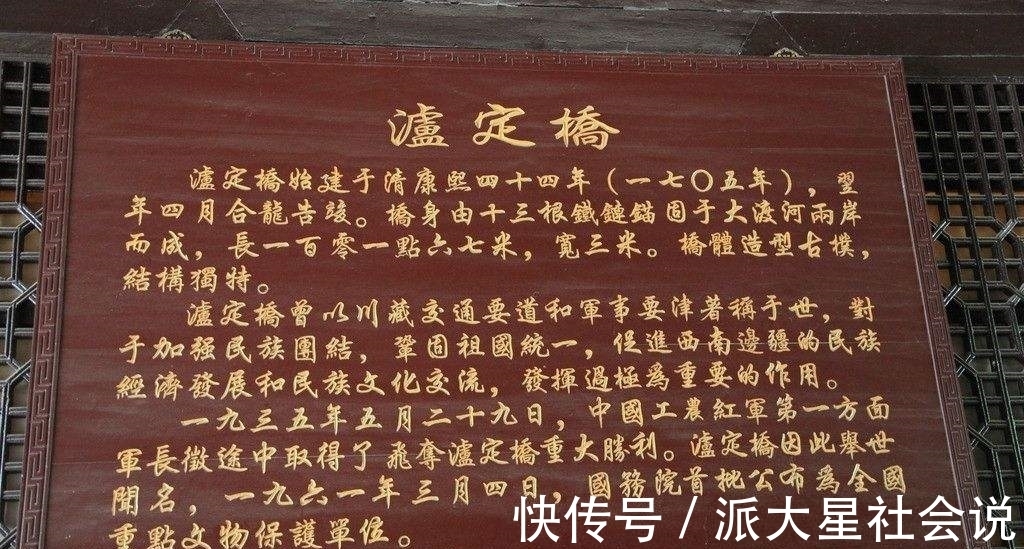 瀘定橋
瀘定橋始建于清康熙四十四年(一七〇五年),翌
年四月合龍告竣。橋身由十三根鐵鏈錨固于大渡河兩岸
而成,長一百零一點六七米,寬三米。橋體造型古樸,
結構獨特。
瀘定橋曾以川藏交通要道和軍事要津著稱于世,對
于加强民族團結,鞏固祖國統一,促進西南邊疆的民族
經濟發展和民族文化交流,發揮過極爲重要的作用。
一九三五年五月二十九日,中國工農紅軍第一方面
軍長徵途中取得了飛奪瀘定橋重大勝利。瀘定橋因此舉世
聞名,一九六一年三月四日,國務院首批公布爲全國
重點文物保護單位。
快传号/派大星社会说